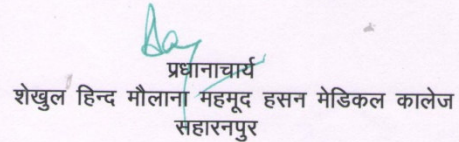 प्रधानाचार्य
शेखुल हिन्द मौलाना महमूद हसन मेडिकल कालेज
सहारनपुर